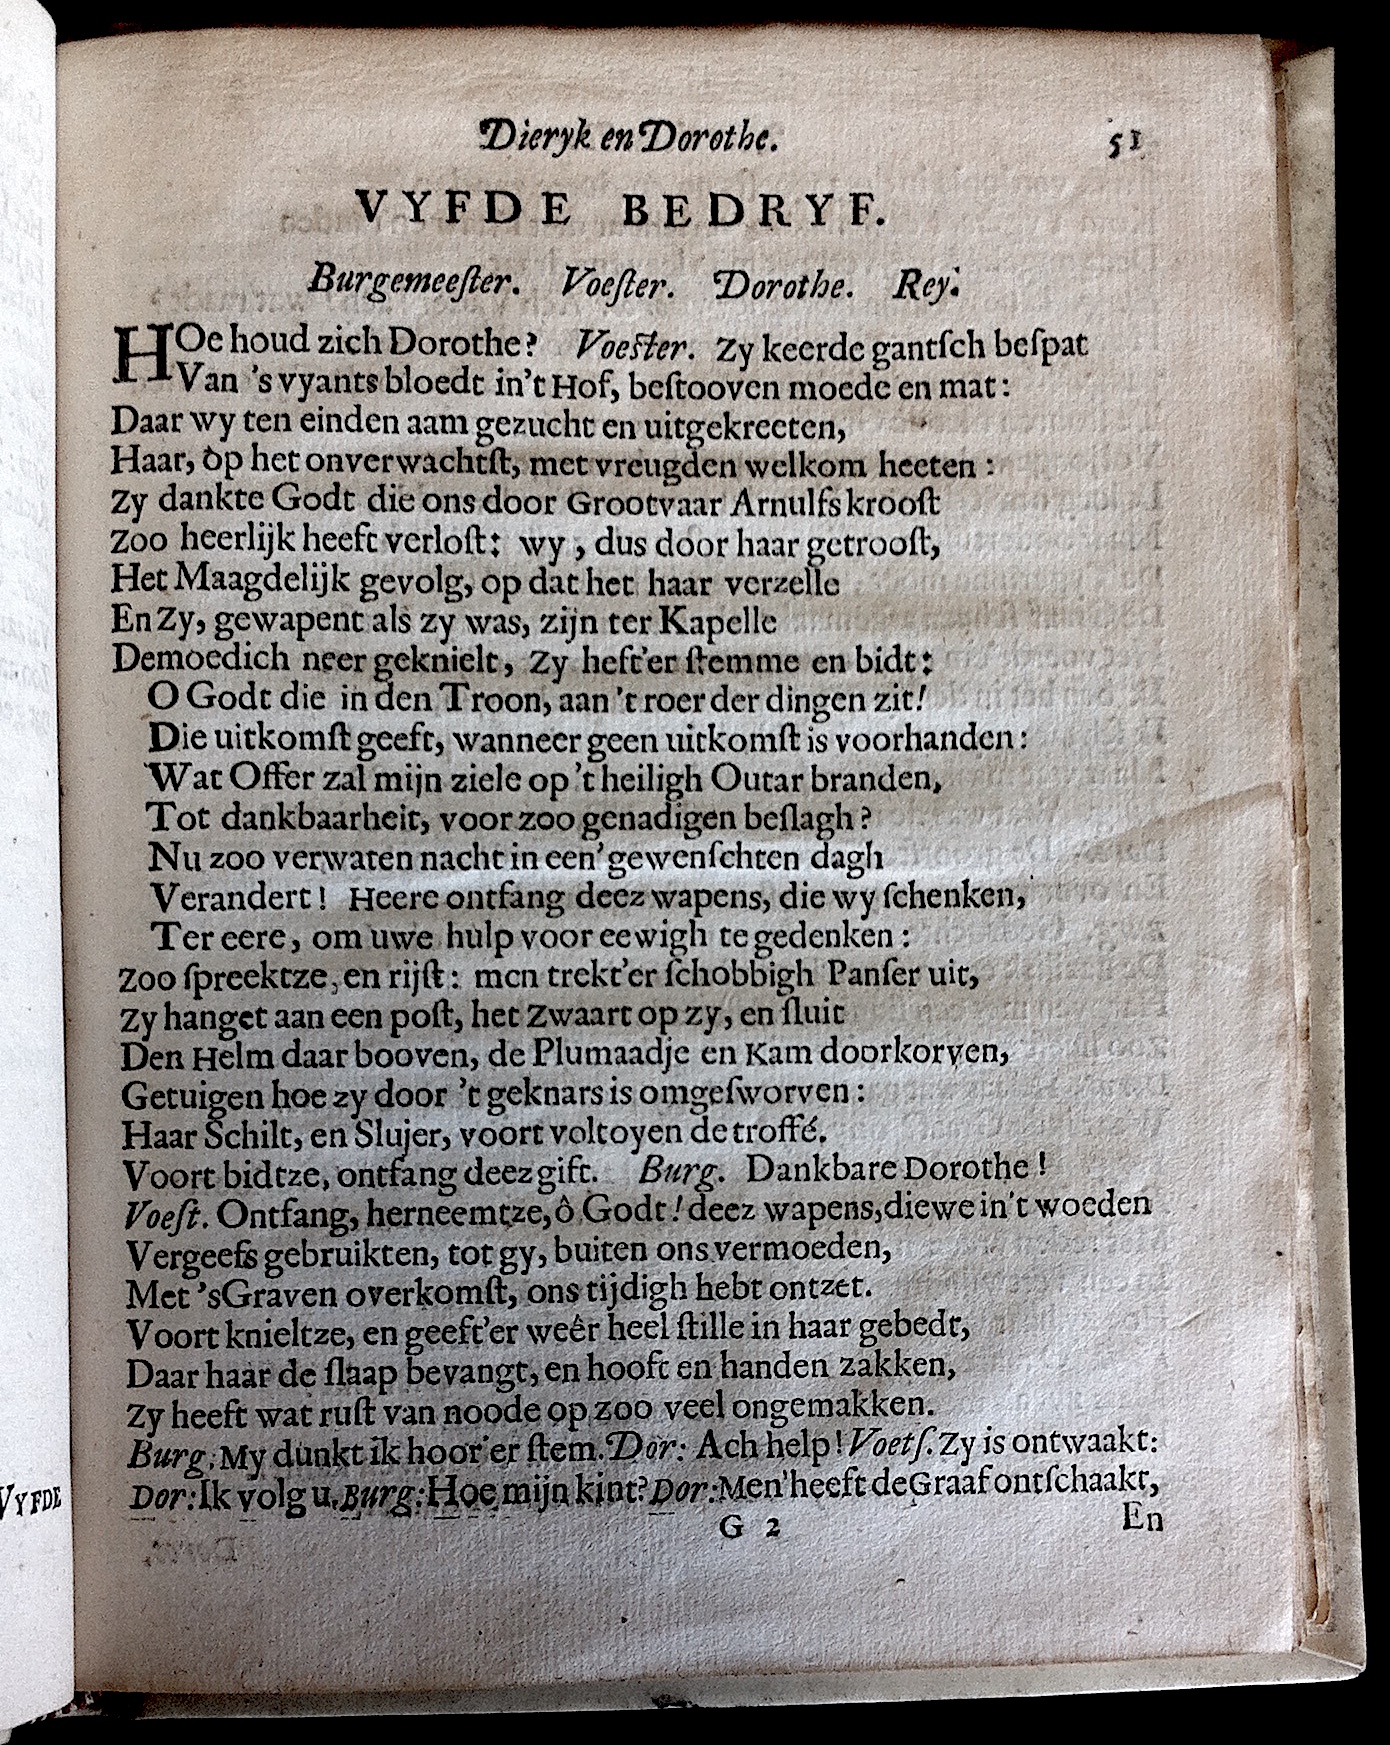 Dieryk en Dorothe. 51
VYFDE BEDRYF.
Burgemeeſter. Voeſter. Dorothe. Rey.
HOe houd zich Dorothe? Voeſter. Zy keerde gantſch beſpat
Van 's vyants bloedt in't Hof, beſtooven moede en mat:
Daar wy ten einden aam gezucht en uitgekreeten,
Haar, òp het onverwachtſt, met vreugden welkom heeten:
Zy dankte Godt die ons door Grootvaar Arnulfs krooſt
Zoo heerlijk heeft verloſt: wy, dus door haar getrooſt,
Het Maagdelijk gevolg, op dat het haar verzelle
En Zy, gewapent als zy was, zijn ter Kapelle
Demoedich neer geknielt, Zy heft'er ſtemme en bidt:
O Godt die in den Troon, aan 't roer der dingen zit!
Die uitkomſt geeft, wanneer geen uitkomſt is voorhanden:
Wat Offer zal mijn ziele op 't heiligh Outar branden,
Tot dankbaarheit, voor zoo genadigen beſlagh?
Nu zoo verwaten nacht in een' gewenſchten dagh
Verandert! Heere ontfang deez wapens, die wy ſchenken,
Ter eere, om uwe hulp voor eewigh te gedenken:
Zoo ſpreektze, en rijſt: men trekt'er ſchobbigh Panſer uit,
Zy hanget aan een poſt, het Zwaart op zy, en ſluit
Den Helm daar booven, de Plumaadje en Kam doorkorven,
Getuigen hoe zy door 't geknars is omgeſworven:
Haar Schilt, en Slujer, voort voltoyen de troffé.
Voort bidtze, ontfang deez gift. Burg. Dankbare Dorothe!
Voeſt. Ontfang, herneemtze, ô Godt! deez wapens, die we in't woeden
Vergeefs gebruikten, tot gy, buiten ons vermoeden,
Met 's Graven overkomſt, ons tijdigh hebt ontzet.
Voort knieltze, en geeft'er weêr heel ſtille in haar gebedt,
Daar haar de ſlaap bevangt, en hooft en handen zakken,
Zy heeft wat ruſt van noode op zoo veel ongemakken.
Burg: My dunkt ik hoor'er ſtem. Dor: Ach help! Voetſ. Zy is ontwaakt:
Dor: Ik volg u. Burg: Hoe mijn kint? Dor: Men' heeft de Graaf ontſchaakt,
G 2 En
VYFDE